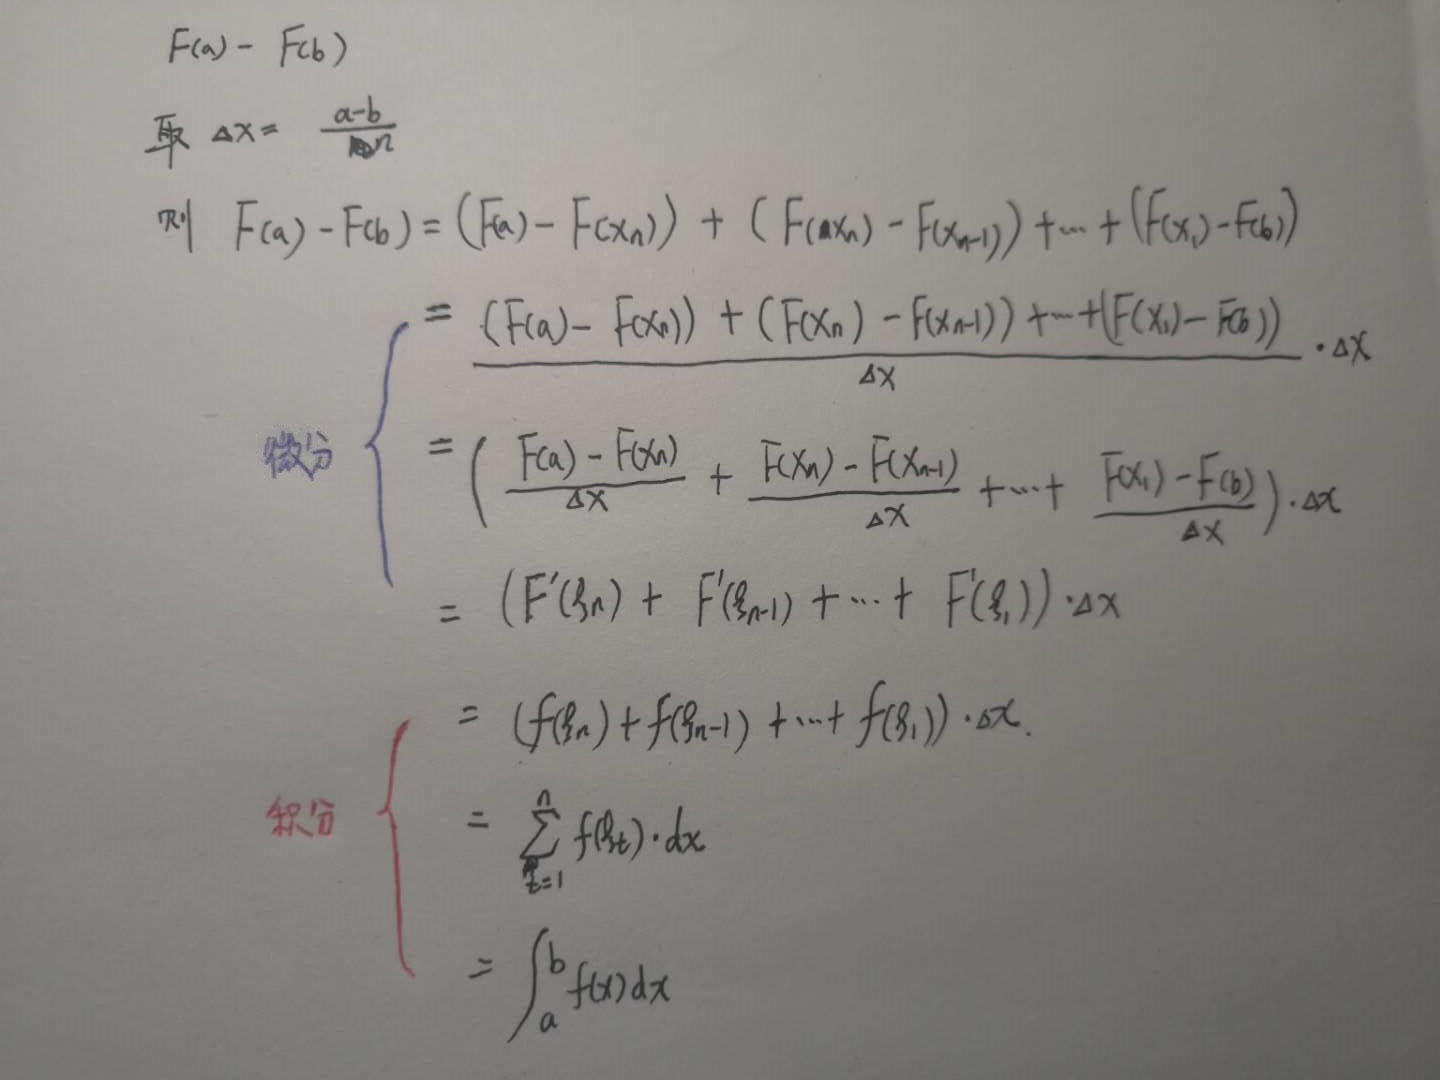 F(a) - F(b)
取 Δx = (a-b)/n
则 F(a) - F(b) = (F(a) - F(xₙ)) + (F(xₙ) - F(xₙ₋₁)) + ⋯ + (F(x₁) - F(b))
= ((F(a) - F(xₙ)) + (F(xₙ) - F(xₙ₋₁)) + ⋯ + (F(x₁) - F(b)))/Δx · Δx
微分
= ((F(a) - F(xₙ))/Δx + (F(xₙ) - F(xₙ₋₁))/Δx + ⋯ + (F(x₁) - F(b))/Δx) · Δx
= (F'(ξₙ) + F'(ξₙ₋₁) + ⋯ + F'(ξ₁)) · Δx
= (f(ξₙ) + f(ξₙ₋₁) + ⋯ + f(ξ₁)) · Δx.
积分
= ∑_{t=1}^{n} f(ξₜ) · dx
= ∫_{a}^{b} f(x)dx